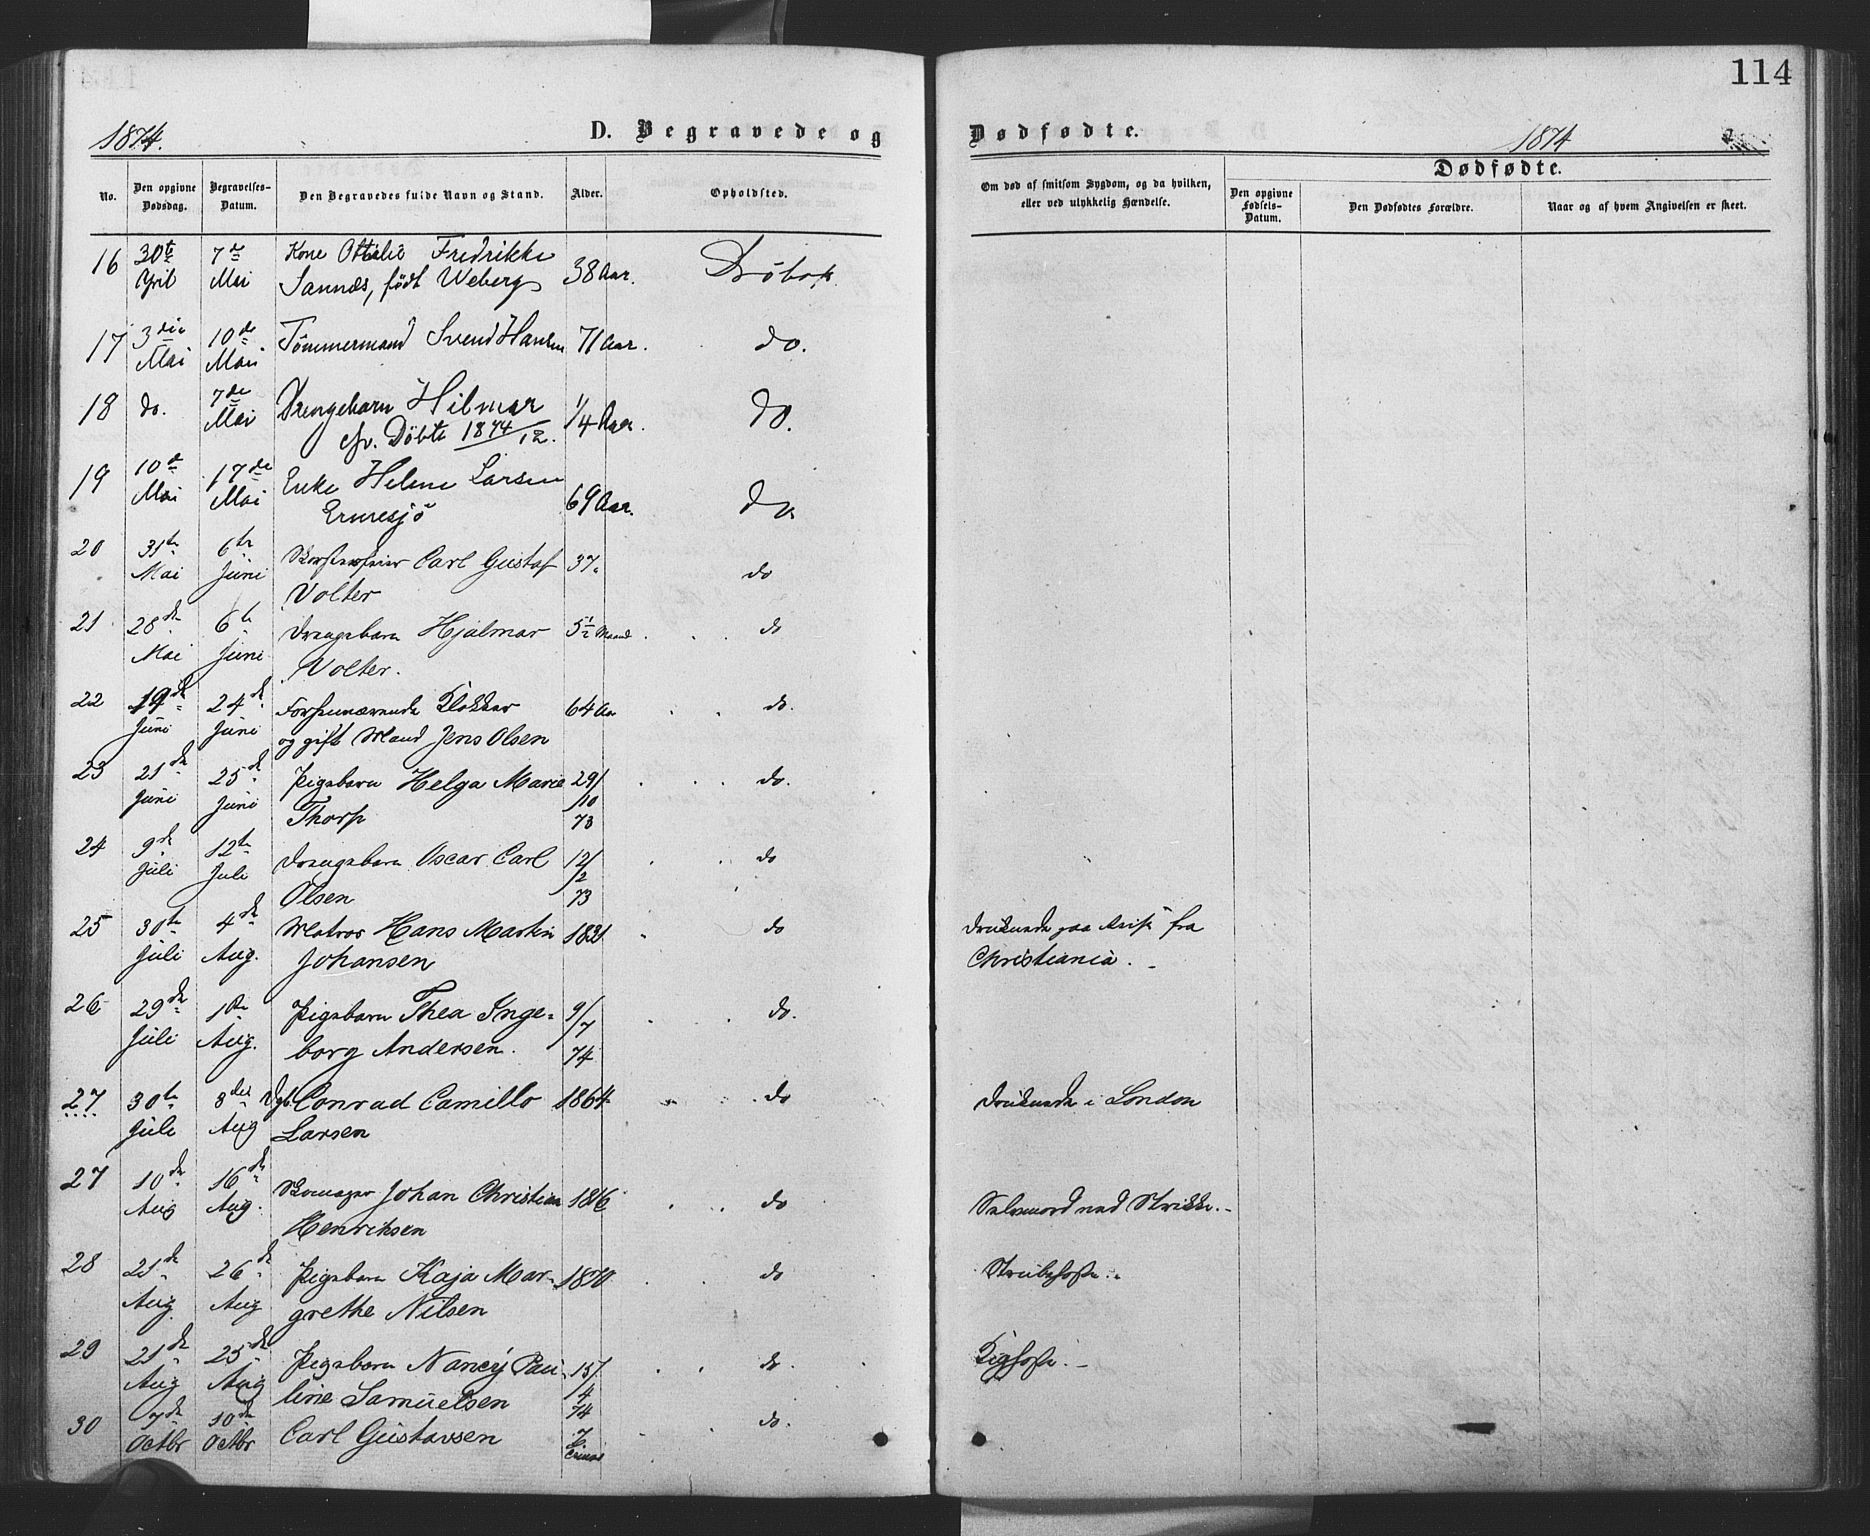 114
1874.
D. Begravede og
Dødfødte.
1874
No.
Den opgivne Dødsdag.
Begravelses-Datum.
Den Begravedes fulde Navn og Stand.
Alder.
Opholdsted.
Om død af smitsom Sygdom, og da hvilken, eller ved ulykkelig Hændelse.
Dødfødte.
Den opgivne Fødsels-Datum.
Den Dødfødtes Forældre.
Naar og af hvem Angivelsen er skeet.
16 30te April 7de Mai Kone Ottilie Fredrikke
Sannæs, født Weberg 38 Aar. Drøbak.
17 3die Mai 10de Mai Tømmermand Svend Hansen 71 Aar. do.
18 do. 7de Mai Drengebarn Hilmar
cfr. Døbte 1874/12. 1/4 Aar. do.
19 10de Mai 17de Mai Enke Helene Larsen
Ernresjö 69 Aar. do.
20 31te Mai 6te Juni Skorstensfeier Carl Gustaf
Volter 37. do
21 28de Mai 6te Juni Drengebarn Hjalmar
Volter. 5 1/2 Maaned do
22 19de Juni 24de Juni Forhenværende Klokker
og gift Mand Jens Olsen 64 Aar do.
23 21de Juni 25de Juni Pigebarn Helga Marie
Thorp 29/10 73 do.
24 9de Juli 12te Juli Drengebarn Oscar Carl
Olsen 12/2 73 do
25 30te Juli 4de Aug. Matros Hans Martin
Johansen 1831 do Druknede paa Reise fra
Christiania.
26 29de Juli 1ste Aug. Pigebarn Thea Inge-
borg Andersen. 9/7 74 do.
27 30te Juli 3die Aug Dgb. Conrad Camillo
Larsen 1864 do Druknede i London
27 10de Aug 16de Aug. Skomager Johan Christian
Henriksen 1816 do Selvmord ved Strikke.
28 21de Aug. 26de Aug Pigebarn Kaja Mar-
grethe Nilsen 1870 do Strubehoste.
29 21de Aug 25de Aug Pigebarn Nancy Pau-
line Samuelsen 15/4 74 do Kighoste.
30 7de Octbr 10de Octbr Carl Gustavsen 7 do.